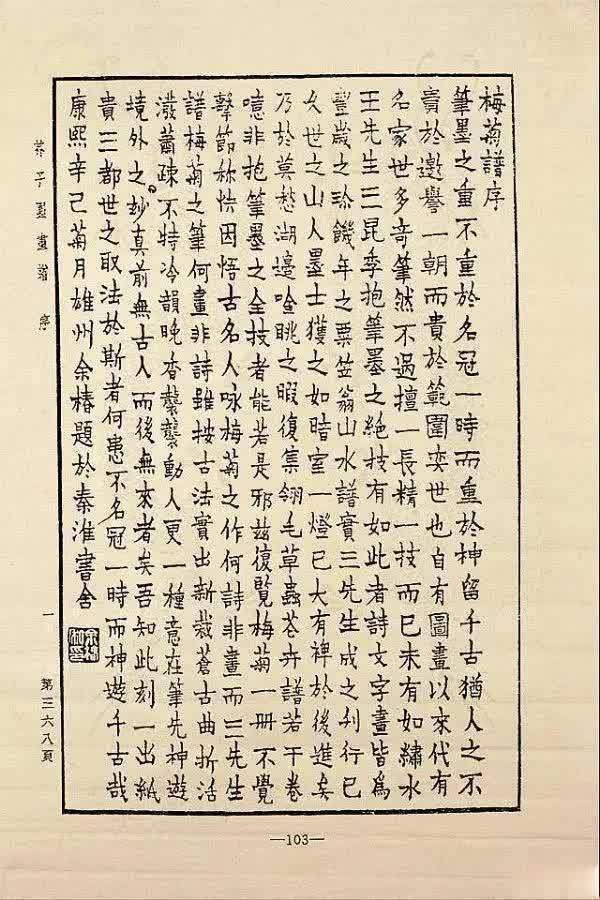 梅菊譜序
筆墨之重不重於名冠一時而重於神留千古猶人之不
貴於邀譽一朝而貴於範圍奕世也自有圖畫以來代有
名家世多奇筆然不過擅一長精一技而已未有如繡水
王先生三昆季抱筆墨之絕技有如此者詩文字畫皆為
豐歲之珍饑年之粟笠翁山水譜實三先生成之刋行已
久世之山人墨士獲之如暗室一燈已大有裨於後進矣
乃於莫愁湖邊唫眺之暇復集翎毛草蟲花卉譜若干卷
噫非抱筆墨之全技者能若是邪茲復覽梅菊一冊不覺
擊節称快因悟古名人咏梅菊之作何詩非畫而三先生
譜梅菊之筆何畫非詩雖按古法實出新裁蒼古曲折活
潑蕭疎不特冷韻晚香襲襲動人更一種意在筆先神遊
境外之妙真前無古人而後無來者矣吾知此刻一出紙
貴三都世之取法於斯者何患不名冠一時而神遊千古哉
康熙辛巳菊月雄州余椿題於秦淮書舍
芥子園畫譜 序
一
第三六八頁
—103—